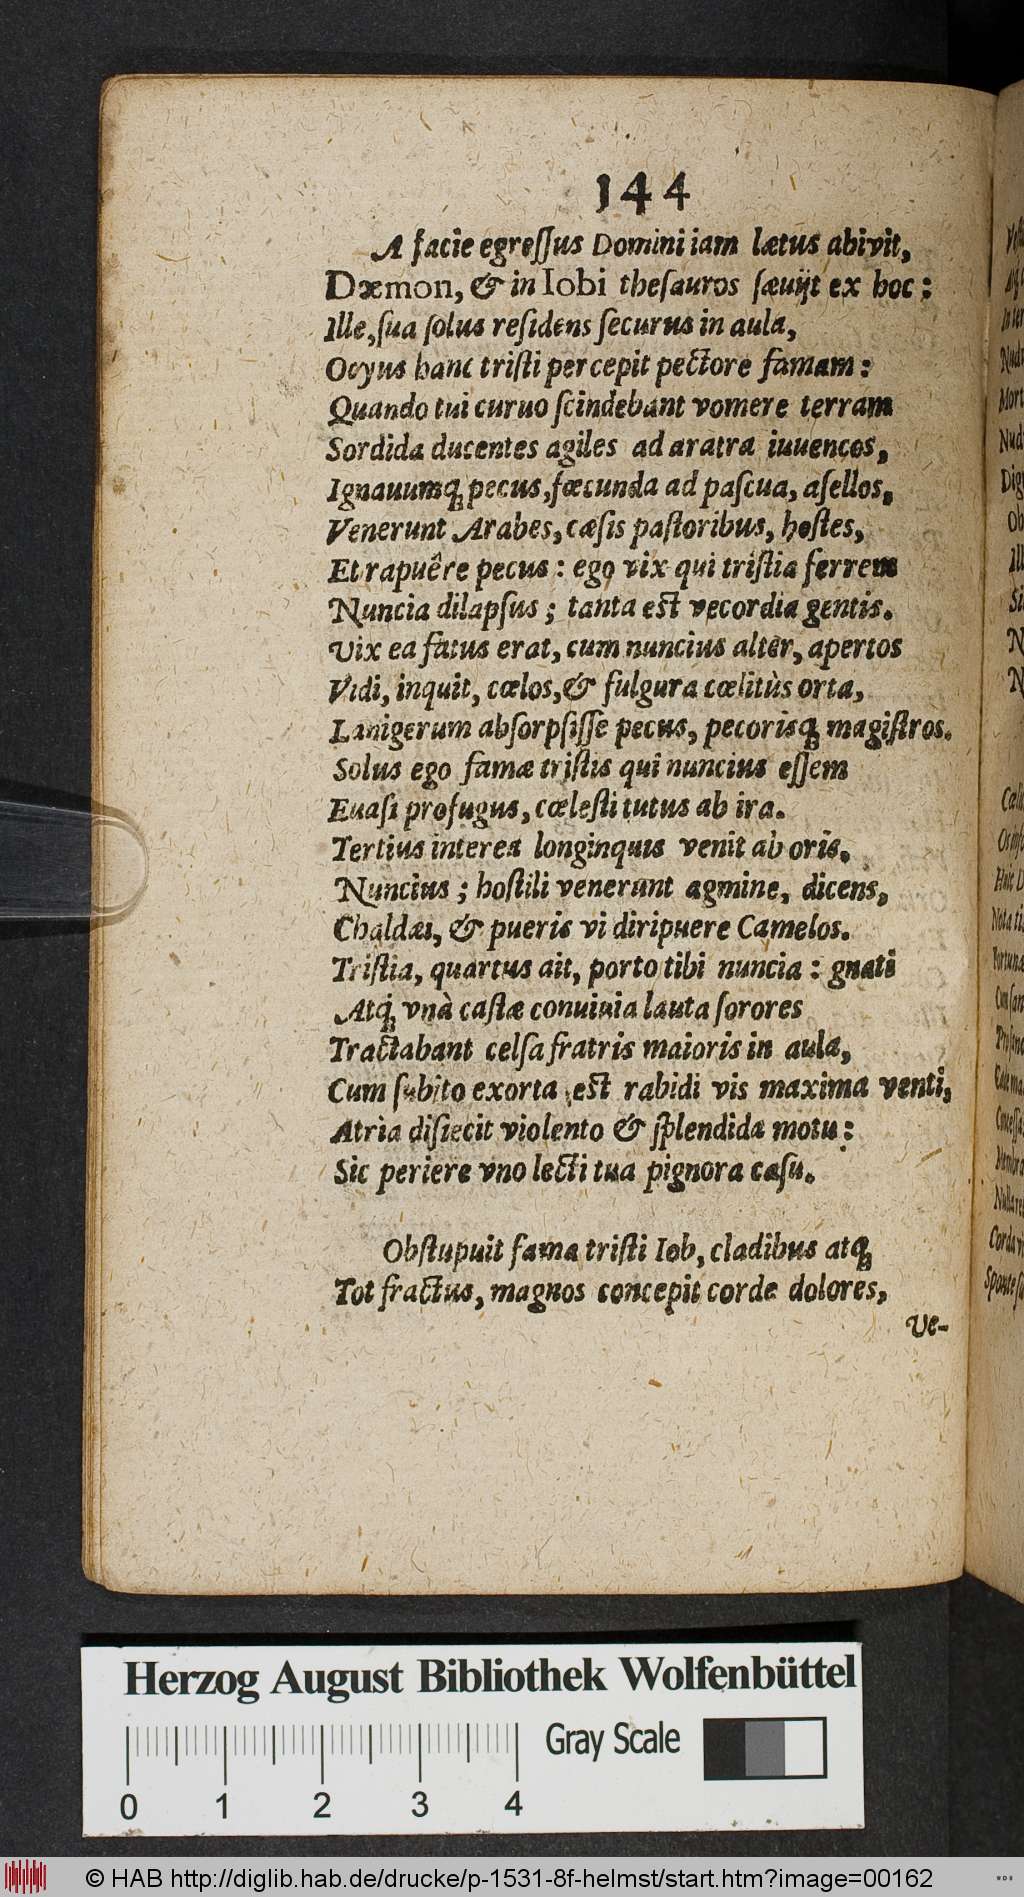 144
A facie egreſſus Domini iam lætus abivit,
Dæmon, & in Iobi theſauros ſæuijt ex hoc:
Ille, ſua ſolus reſidens ſecurus in aula,
Ocyus hanc triſti percepit pectore famam:
Quando tui curuo ſcindebant vomere terram
Sordida ducentes agiles ad aratra iuuencos,
Ignauumq́ꝫ pecus, fœcunda ad paſcua, aſellos,
Venerunt Arabes, cæſis paſtoribus, hoſtes,
Et rapuêre pecus: ego vix qui triſtia ferrem
Nuncia dilapſus; tanta est vecordia gentis.
Vix ea fatus erat, cum nuncius alter, apertos
Vidi, inquit, cœlos, & fulgura cœlitùs orta,
Lanigerum abſorpſiſſe pecus, pecorisq́ꝫ magiſtros.
Solus ego famæ triſtis qui nuncius eſſem
Euaſi profugus, cœleſti tutus ab ira.
Tertius interea longinquis venit ab oris,
Nuncius; hoſtili venerunt agmine, dicens,
Chaldæi, & pueris vi diripuere Camelos.
Triſtia, quartus ait, porto tibi nuncia: gnati
Atq́ꝫ vnà caſtæ conuiuia lauta ſorores
Tractabant celſa fratris maioris in aula,
Cum ſubito exorta est rabidi vis maxima venti,
Atria diſiecit violento & ſplendida motu:
Sic periere vno lecti tua pignora caſu.
Obſtupuit fama triſti Iob, cladibus atq́ꝫ
Tot fractus, magnos concepit corde dolores,
Ve-
Herzog August Bibliothek Wolfenbüttel
Gray Scale
0 1 2 3 4
© HAB http://diglib.hab.de/drucke/p-1531-8f-helmst/start.htm?image=00162